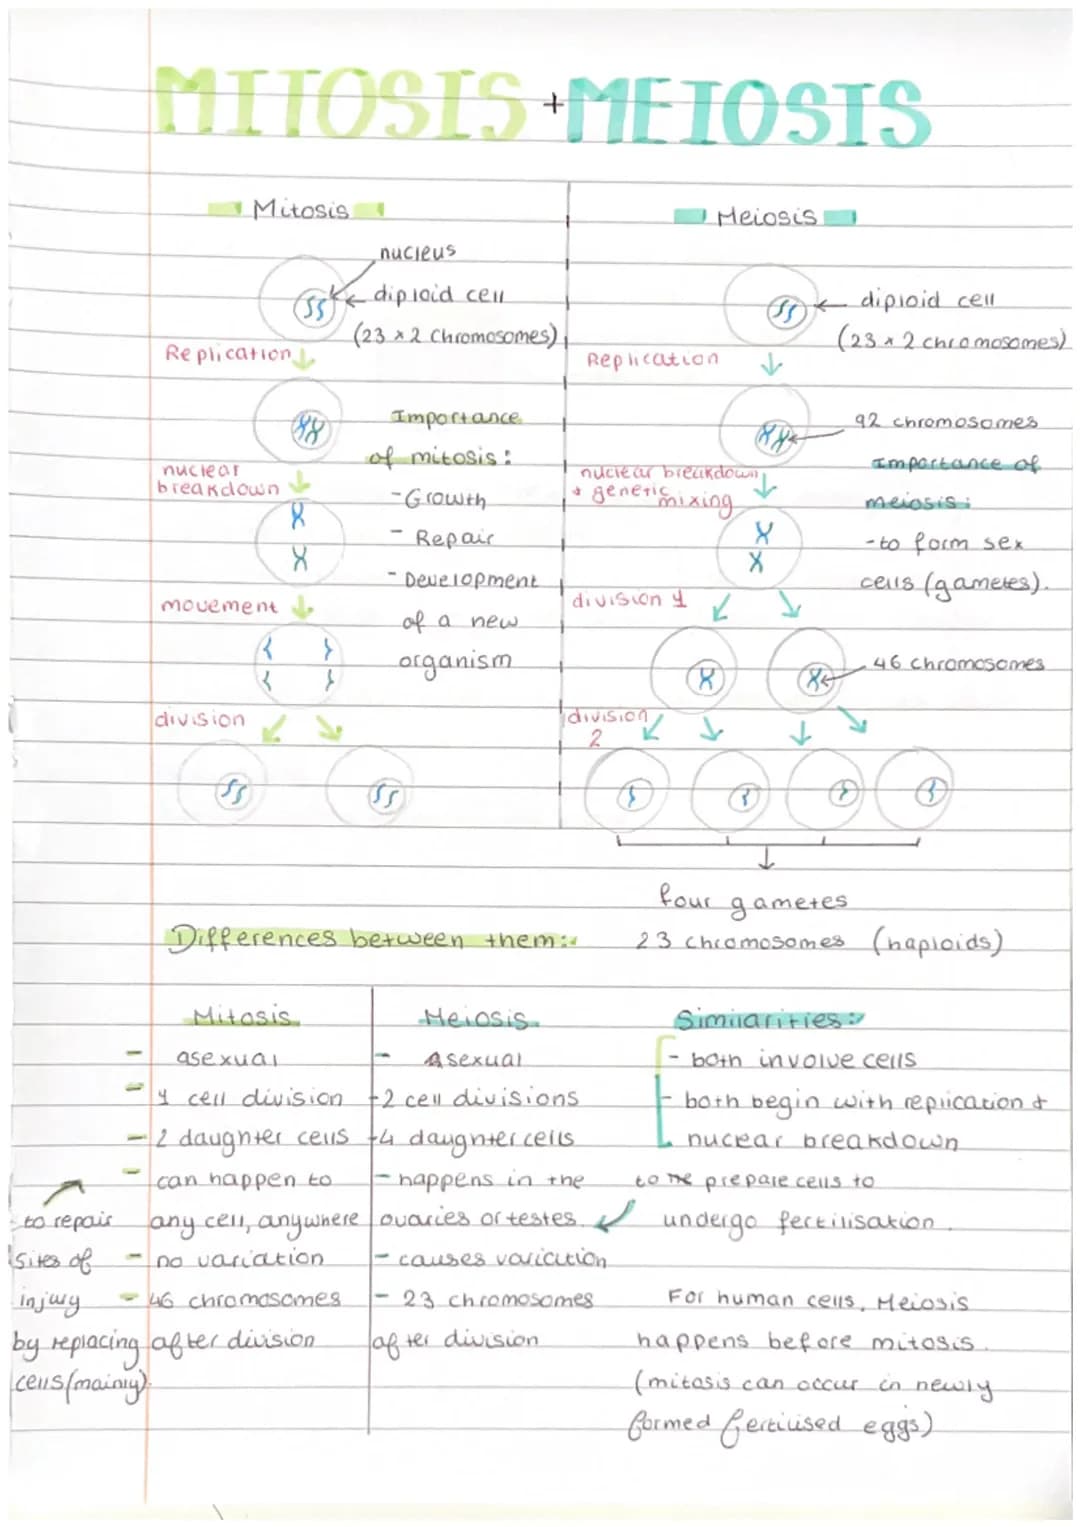 MITOSIS + MEIOSIS
Mitosis
nucleus
diploid cell
(23 x 2 Chromosomes)
Replication
Importance
of mitosis:
nuclear
breakdown
- Growth
- Repair
- Development
of a new
organism
movement
division
Meiosis
diploid cell
(23 x 2 chromosomes)
Replication
92 chromosomes
Importance of
meiosis:
nuclear breakdown
+ genetic mixing
- to form sex
cells (gametes).
division 1
46 chromosomes
division
2
four gametes
23 chromosomes (haploids)
Differences between them:
Mitosis
- asexual
- 1 cell division
- 2 daughter cells
- can happen to
any cell, anywhere
- no variation
- 46 chromosomes
after division
to repair
sites of
injury
by replacing
cells (mainly).
Meiosis
- Asexual
- 2 cell divisions
- 4 daughter cells
- happens in the
ovaries or testes.
- causes variation
- 23 chromosomes
after division
Similarities:
- both involve cells
- both begin with replication +
nuclear breakdown
to prepare cells to
undergo fertilisation.
For human cells, Meiosis
happens before mitosis.
(mitosis can occur in newly
formed fertilised eggs)